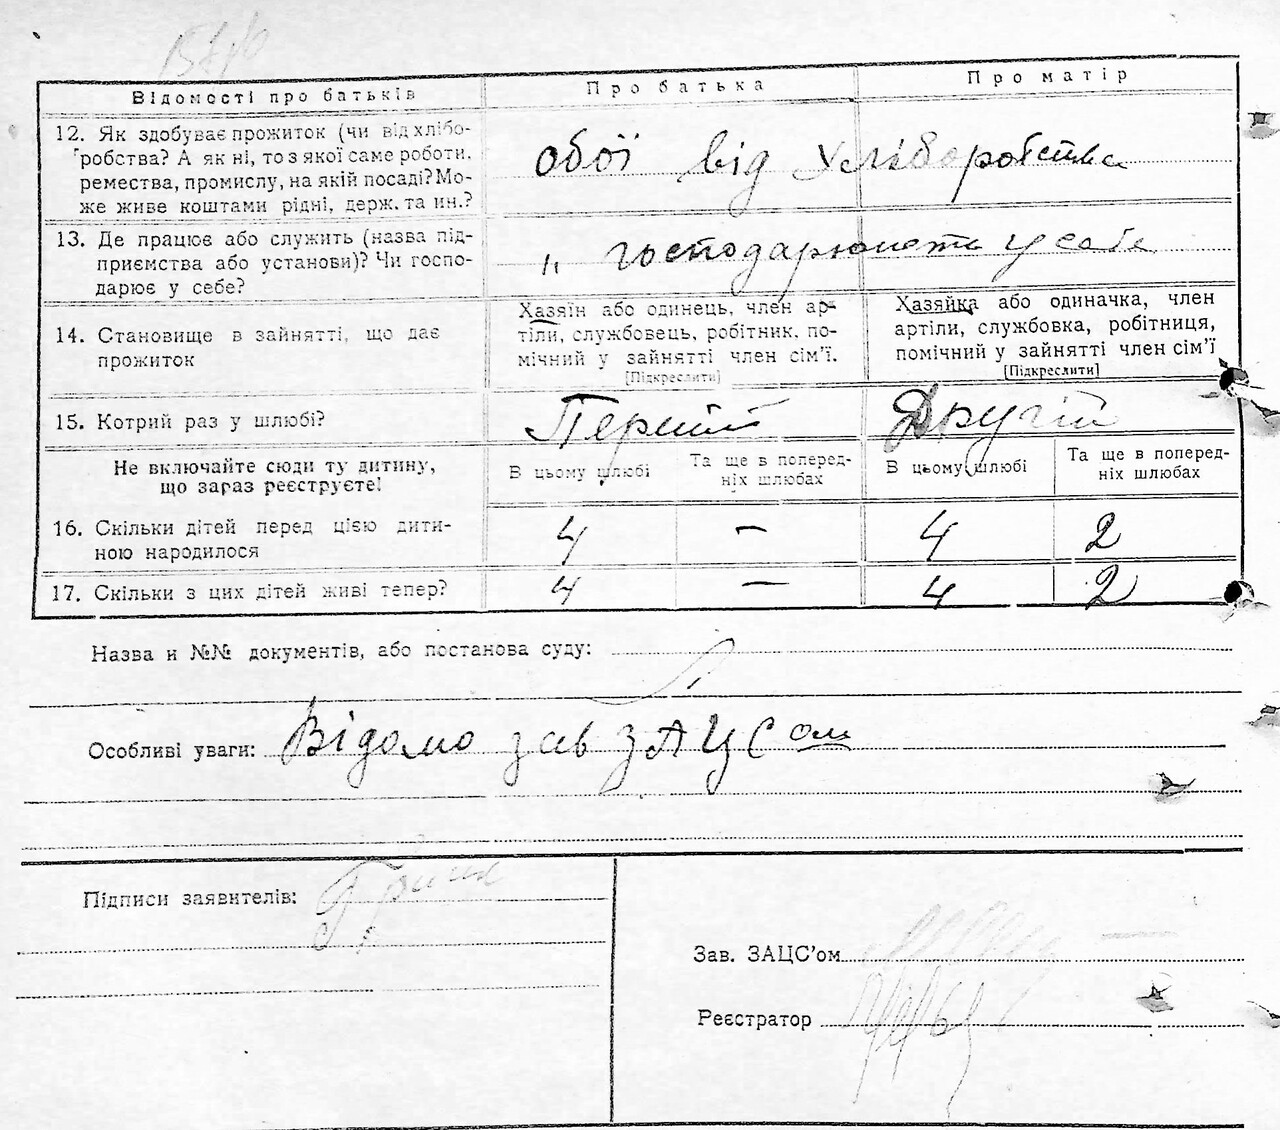 Відомості про батьків
Про батька
Про матір
12. Як здобуває прожиток (чи від хлібо-
робства? А як ні, то з якої саме роботи,
ремества, промислу, на якій посаді? Мо-
же живе коштами рідні, держ. та ин.?
обої від Хліборобства
13. Де працює або служить (назва під-
приємства або установи)? Чи госпо-
дарює у себе?
„ господарюють у себе
14. Становище в зайнятті, що дає
прожиток
Хазяїн або одинець, член ар-
тіли, службовець, робітник, по-
мічний у зайнятті член сім'ї.
[Підкреслити]
Хазяйка або одиначка, член
артіли, службовка, робітниця,
помічний у зайнятті член сім'ї
[Підкреслити]
15. Котрий раз у шлюбі?
Перший
Другий
Не включайте сюди ту дитину,
що зараз реєструєте!
В цьому шлюбі
Та ще в поперед-
ніх шлюбах
В цьому шлюбі
Та ще в поперед-
ніх шлюбах
16. Скільки дітей перед цією дити-
ною народилося
4 – 4 2
17. Скільки з цих дітей живі тепер?
4 – 4 2
Назва и №№ документів, або постанова суду:
Особливі уваги: Відомо зав ЗАЦСом
Підписи заявителів:
Зав. ЗАЦС'ом
Реєстратор